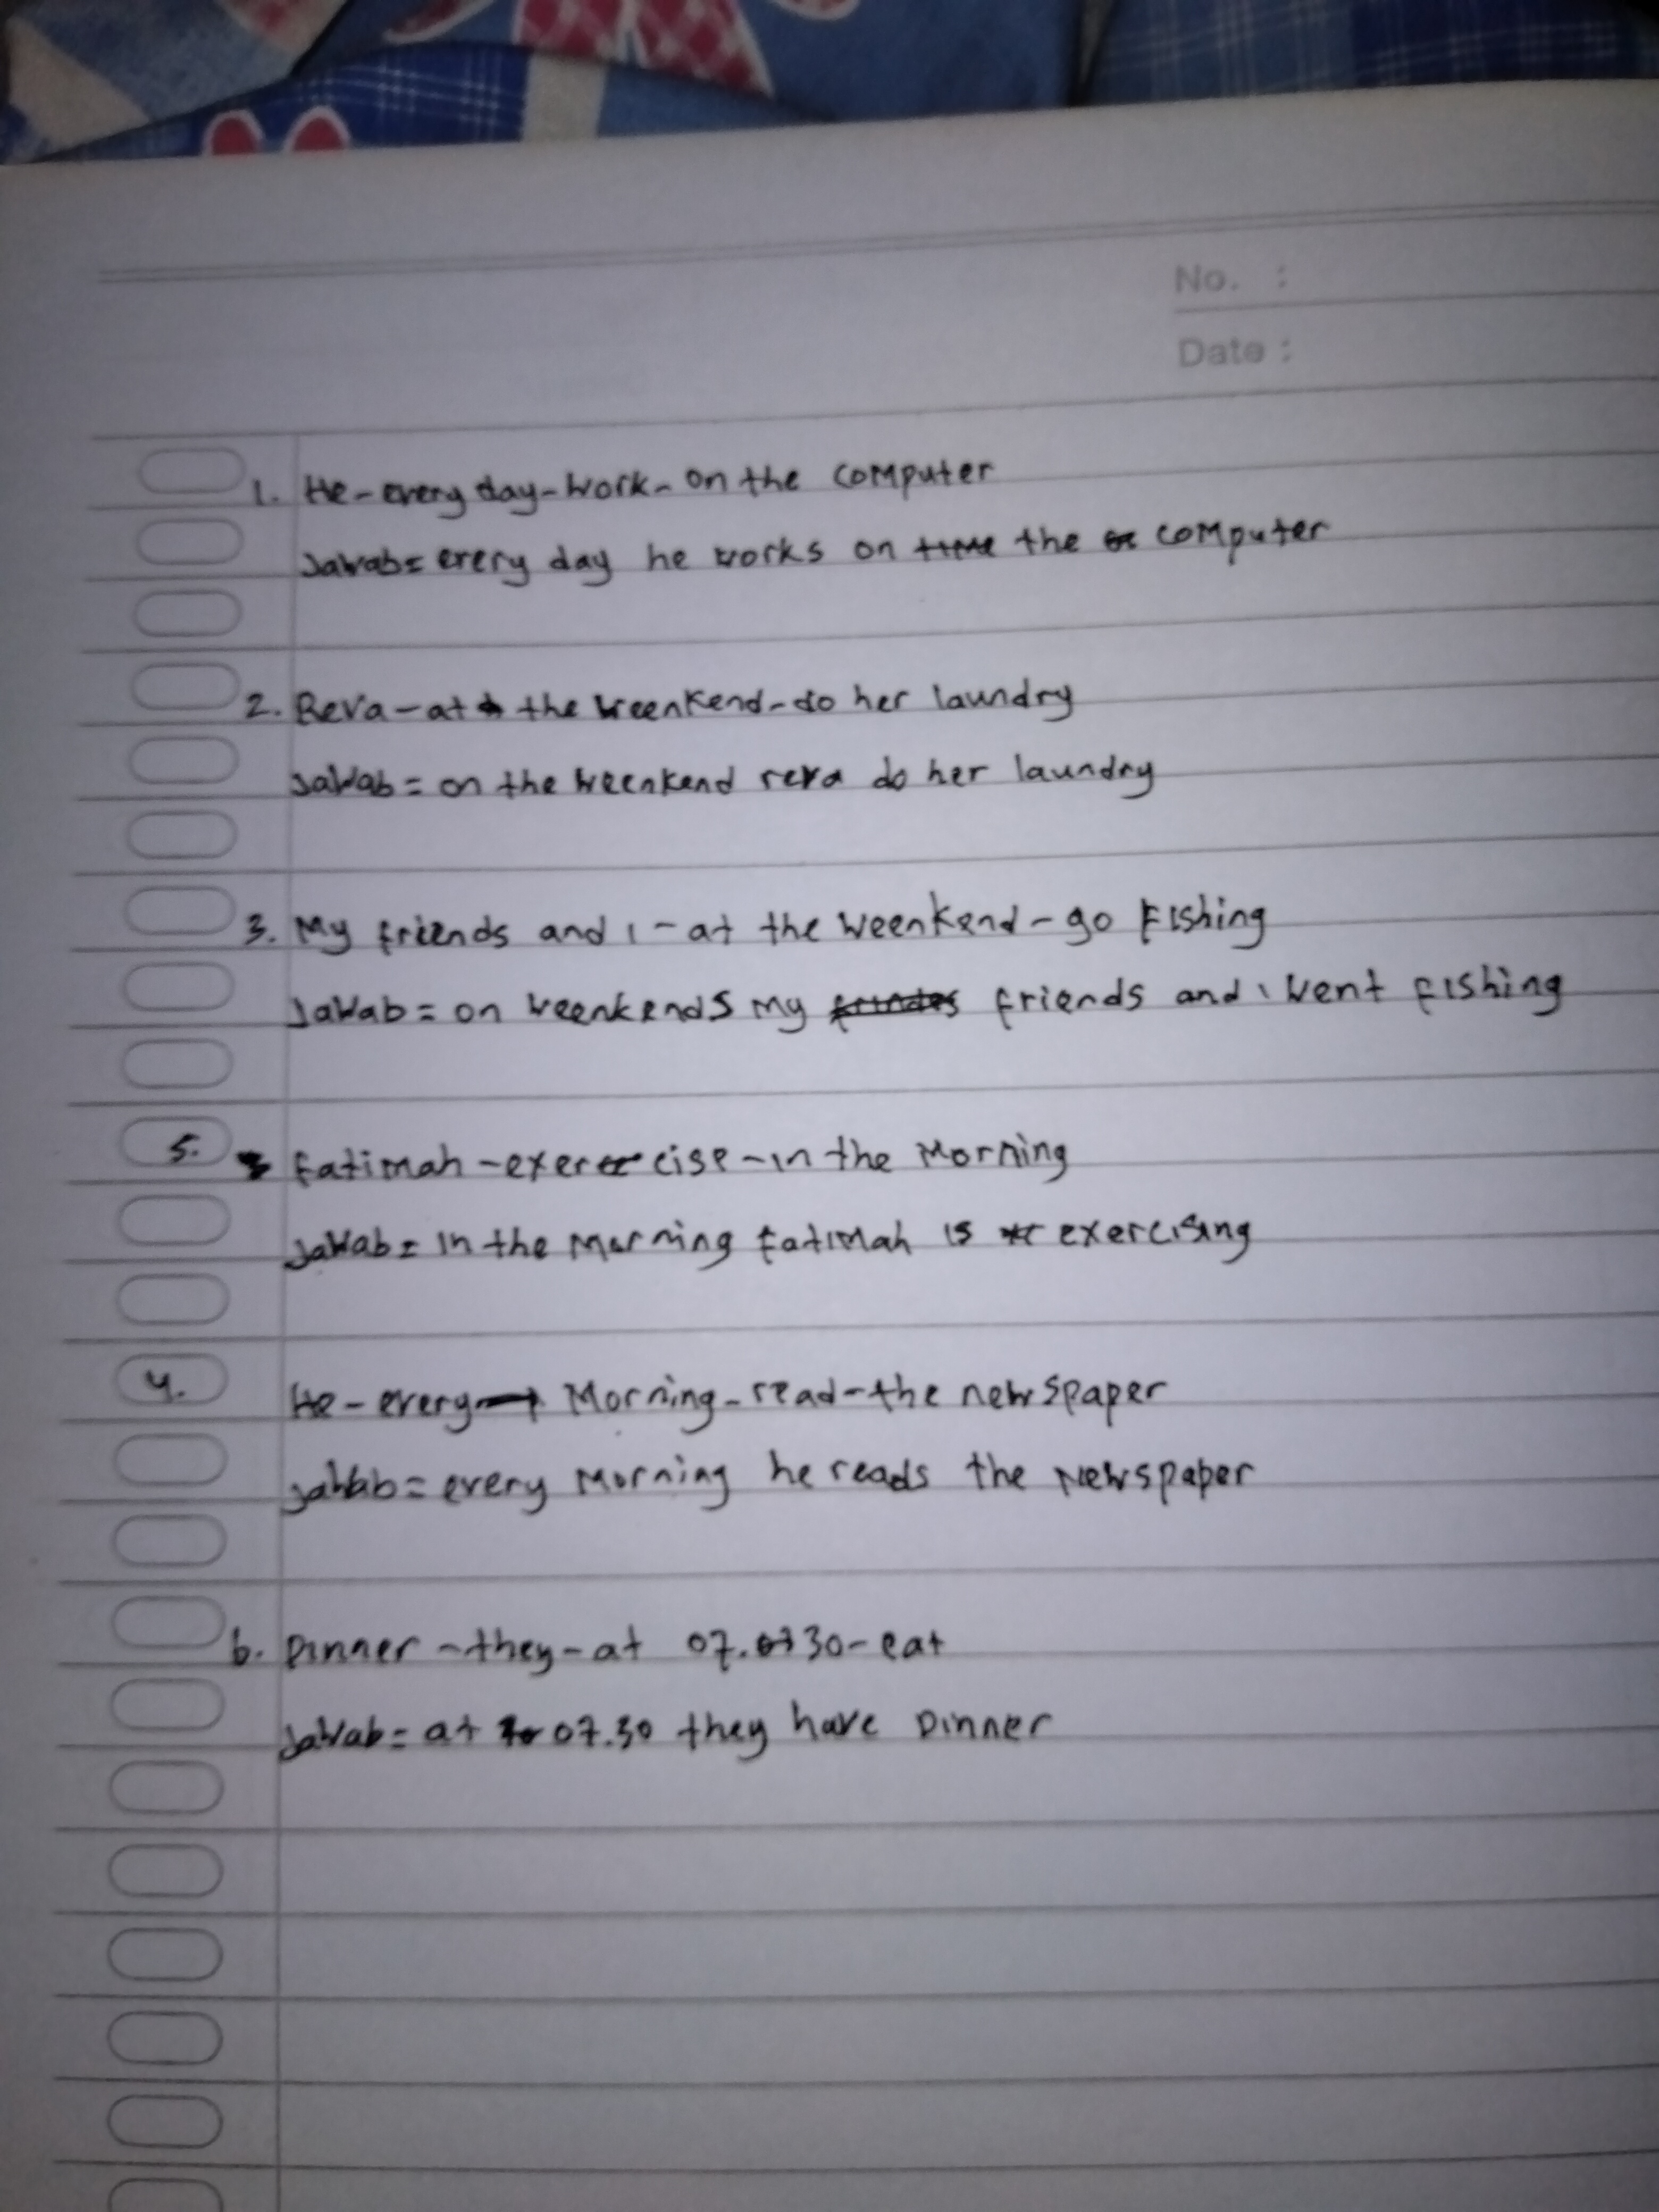 No. :
Date :
1. He-every day-work-on the computer
Jawab= every day he works on the computer
2. Reva-at the weenkend-do her laundry
Jawab= on the weenkend reva do her laundry
3. My friends and i-at the weenkend-go Fishing
Jawab= on weenkends my friends and i went fishing
5. Fatimah-exercise-in the Morning
Jawab= in the Morning fatimah is exercising
4. He-every Morning-read-the newspaper
Jawab= every Morning he reads the Newspaper
6. Dinner-they-at 07.30-eat
Jawab= at 07.30 they have Dinner